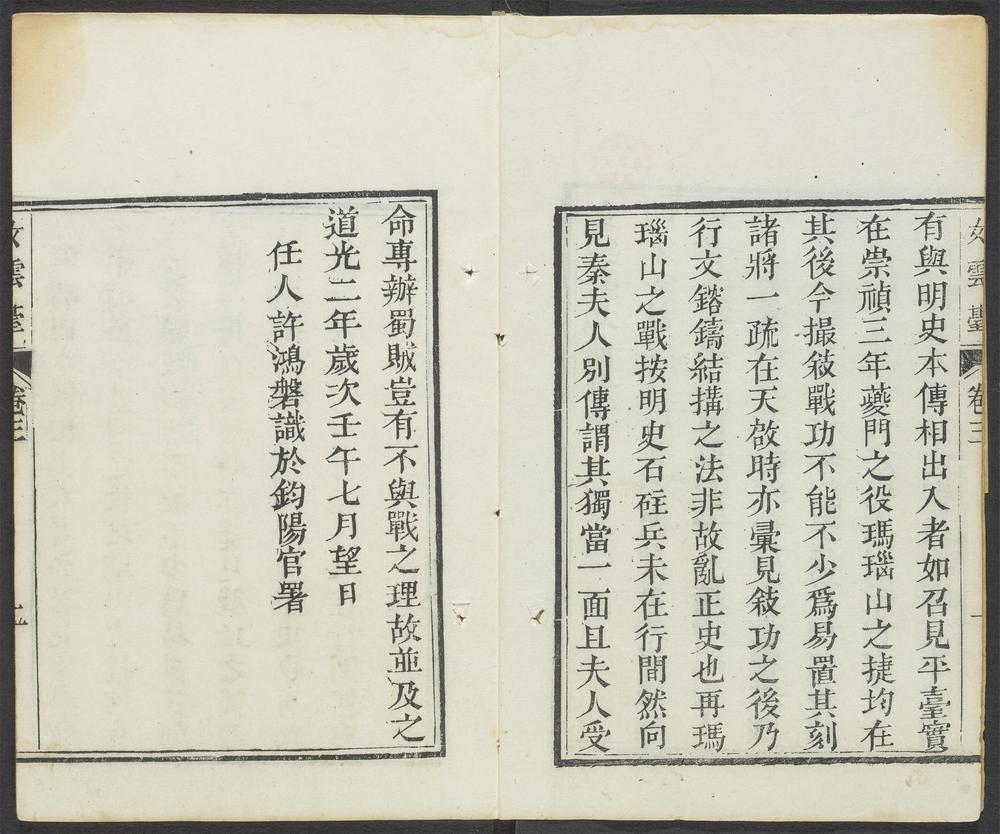 有與明史本傳相出入者如召見平臺實
在崇禎三年夔門之役瑪瑙山之捷均在
其後今撮敍戰功不能不少爲易置其刻
諸將一疏在天啟時亦彙見敍功之後乃
行文鎔鑄結搆之法非故亂正史也再瑪
瑙山之戰按明史石砫兵未在行間然向
見秦夫人別傳謂其獨當一面且夫人受
命專辦蜀賊豈有不與戰之理故並及之
道光二年歲次壬午七月望日
任人許鴻磐識於鈞陽官署
女雲臺
卷三